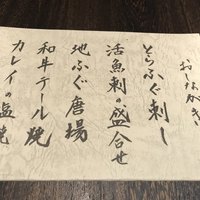 おしながき
とらふぐ刺し
活魚刺の盛合せ
地ふぐ唐揚
和牛テール焼
カレイの塩焼